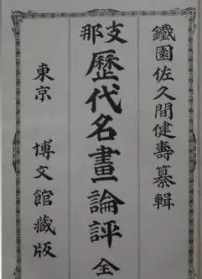 鐵園佐久間健壽纂輯
支那
歷代名畫論評 全
東京 博文館藏版